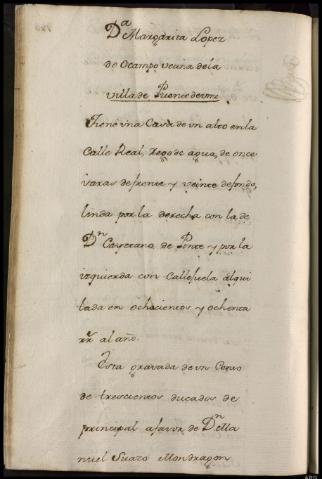 Dª Margarita Lopez
de Ocampo vecina dela
villa de Puentedeume
Tiene vna Casa de vn alto en la
Calle Real, de agua, de once
varas de frente y veinte de fondo,
linda por la derecha con la de
Dn Cayetano de Ponte y por la
izquierda con Callejuela alqui
lada en ochocientos y ochenta
rr. al año.
Esta gravada de vn Censo
de trescientos ducados de
principal afavor de Dn Ma
nuel Suazo Mondragon